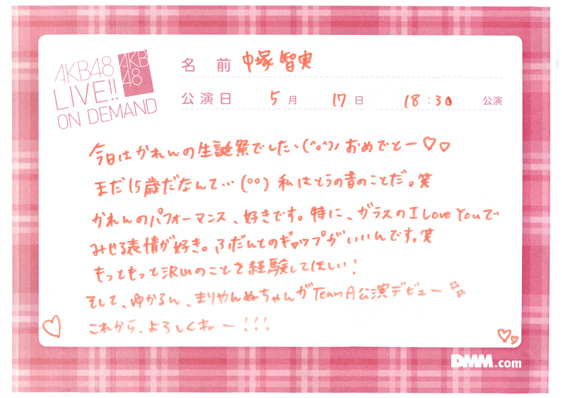 AKB48
LIVE!!
ON DEMAND
AKB
48
名 前 中塚智実
公演日 5月 17日 18:30 公演
今日はかれんの生誕祭でした、(^o^)ノ おめでとー♡♡
まだ15歳だなんて…(°o°) 私はとうの昔のことだ。笑
かれんのパフォーマンス、好きです。特に、ガラスのI Love Youで
みせる表情が好き。ふだんとのギャップがいいんです。笑
もっともっと沢山のことを経験してほしい!
そして、ゆかるん、まりやんぬちゃんがTeamA公演デビュー
これから、よろしくねー!!!
DMM.com